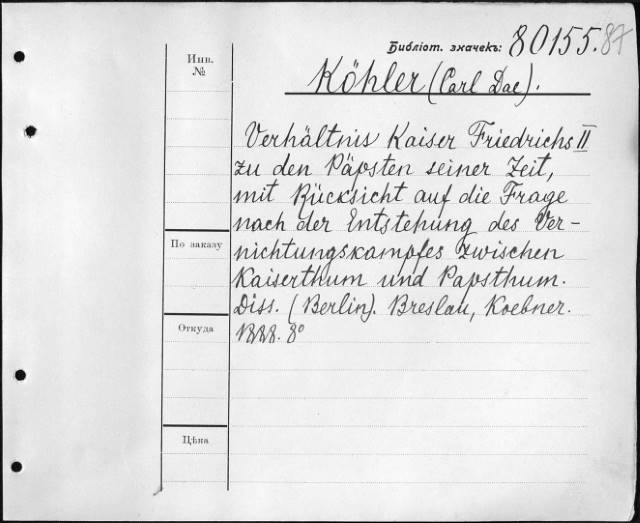 Библіот. значекъ: 80155.87
Инв.
№
Köhler (Carl Dae).
Verhältnis Kaiser Friedrichs II
zu den Päpsten seiner Zeit,
mit Rücksicht auf die Frage
nach der Entstehung des Ver-
nichtungskampfes zwischen
По заказу
Kaiserthum und Papsthum.
Diss. (Berlin). Breslau, Koebner.
Откуда
1888. 8°
Цѣна